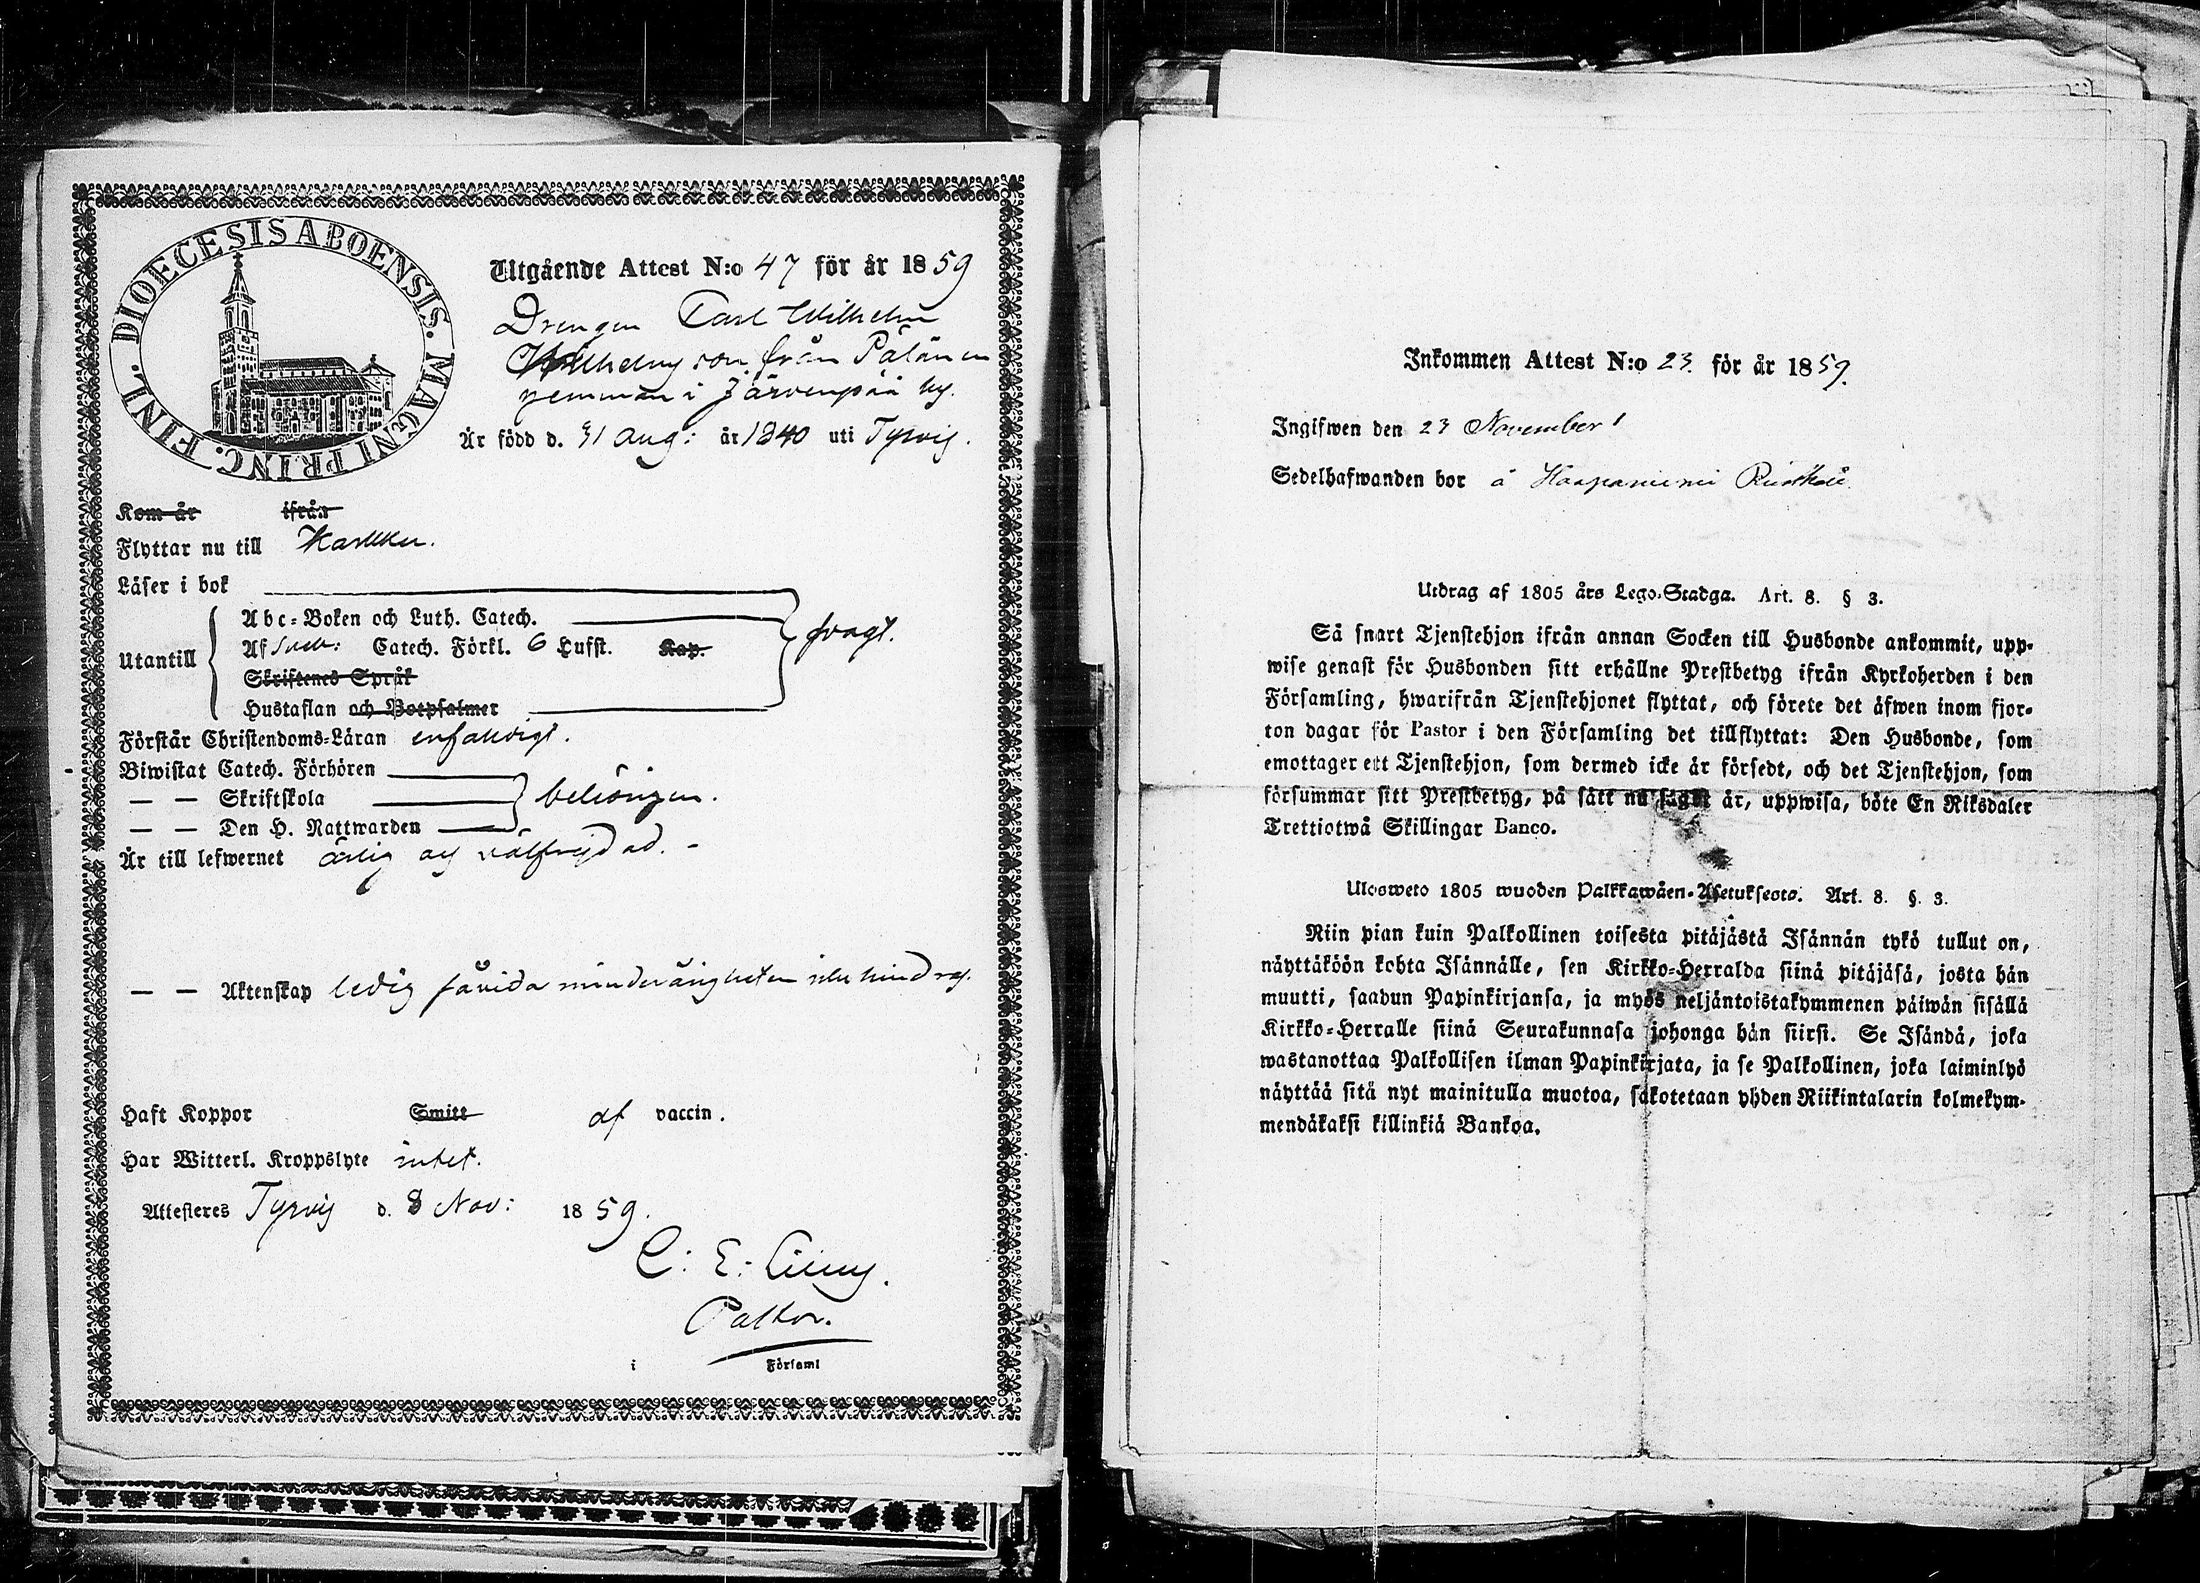 DIOECESIS ABOENSIS. MAGNI PRINC. FINL.
Utgående Attest N:o 47 för år 1859
Drengen Carl Wilhelm
Wilhelmsson från Pälänen
hemman i Järvenpää by.
Är född d. 31 Aug: år 1840 uti Tyrvis.
Kom år ifrån
Flyttar nu till Karkku.
Läser i bok
Abc-Boken och Luth. Catech.
Utantill Af Sveb: Catech. Förkl. 6 Hufst. Kap. svagt.
Skriftenes Språk
Hustaflan och Botpsalmer
Förstår Christendoms-Läran enfaldigt.
Biwistat Catech. Förhören
— — Skriftskola behörigen.
— — Den H. Nattwarden
Är till lefwernet ärlig och välfrejdad. -
— — Äktenskap ledig såvida minderårigheten icke hindrar.
Haft Koppor Smitt af vaccin.
Har Witterl. Kroppslyte intet.
Attesteres Tyrvis d. 8 Nov: 1859.
C: E:
Pastor.
i Församl
Inkommen Attest N:o 23. för år 1859.
Ingifwen den 23 November
Sedelhafwanden bor å Haapaniemi Rusthåll
Utdrag af 1805 års Lego-Stadga. Art. 8. § 3.
Så snart Tjenstehjon ifrån annan Socken till Husbonde ankommit, upp-
wise genast för Husbonden sitt erhållne Prestbetyg ifrån Kyrkoherden i den
Församling, hwarifrån Tjenstehjonet flyttat, och förete det äfwen inom fjor-
ton dagar för Pastor i den Församling det tillflyttat: Den Husbonde, som
emottager ett Tjenstehjon, som dermed icke är försedt, och det Tjenstehjon, som
försummar sitt Prestbetyg, på sätt nu sagdt är, uppwisa, böte En Riksdaler
Trettiotwå Skillingar Banco.
Ulosweto 1805 wuoden Palkkawäen-Asetuksesta. Art. 8. §. 3.
Niin pian kuin Palkollinen toisesta pitäjästä Isännän tykö tullut on,
näyttäköön kohta Isännälle, sen Kirkko-Herralda siinä pitäjäsä, josta hän
muutti, saadun Papinkirjansa, ja myös neljäntoistakymmenen päiwän sisällä
Kirkko-Herralle siinä Seurakunnasa johonga hän siirsi. Se Isändä, joka
wastanottaa Palkollisen ilman Papinkirjata, ja se Palkollinen, joka laiminlyö
näyttää sitä nyt mainitulla muotoa, sakotetaan yhden Riikintalarin kolmekym-
mendäkaksi killinkiä Bankoa.